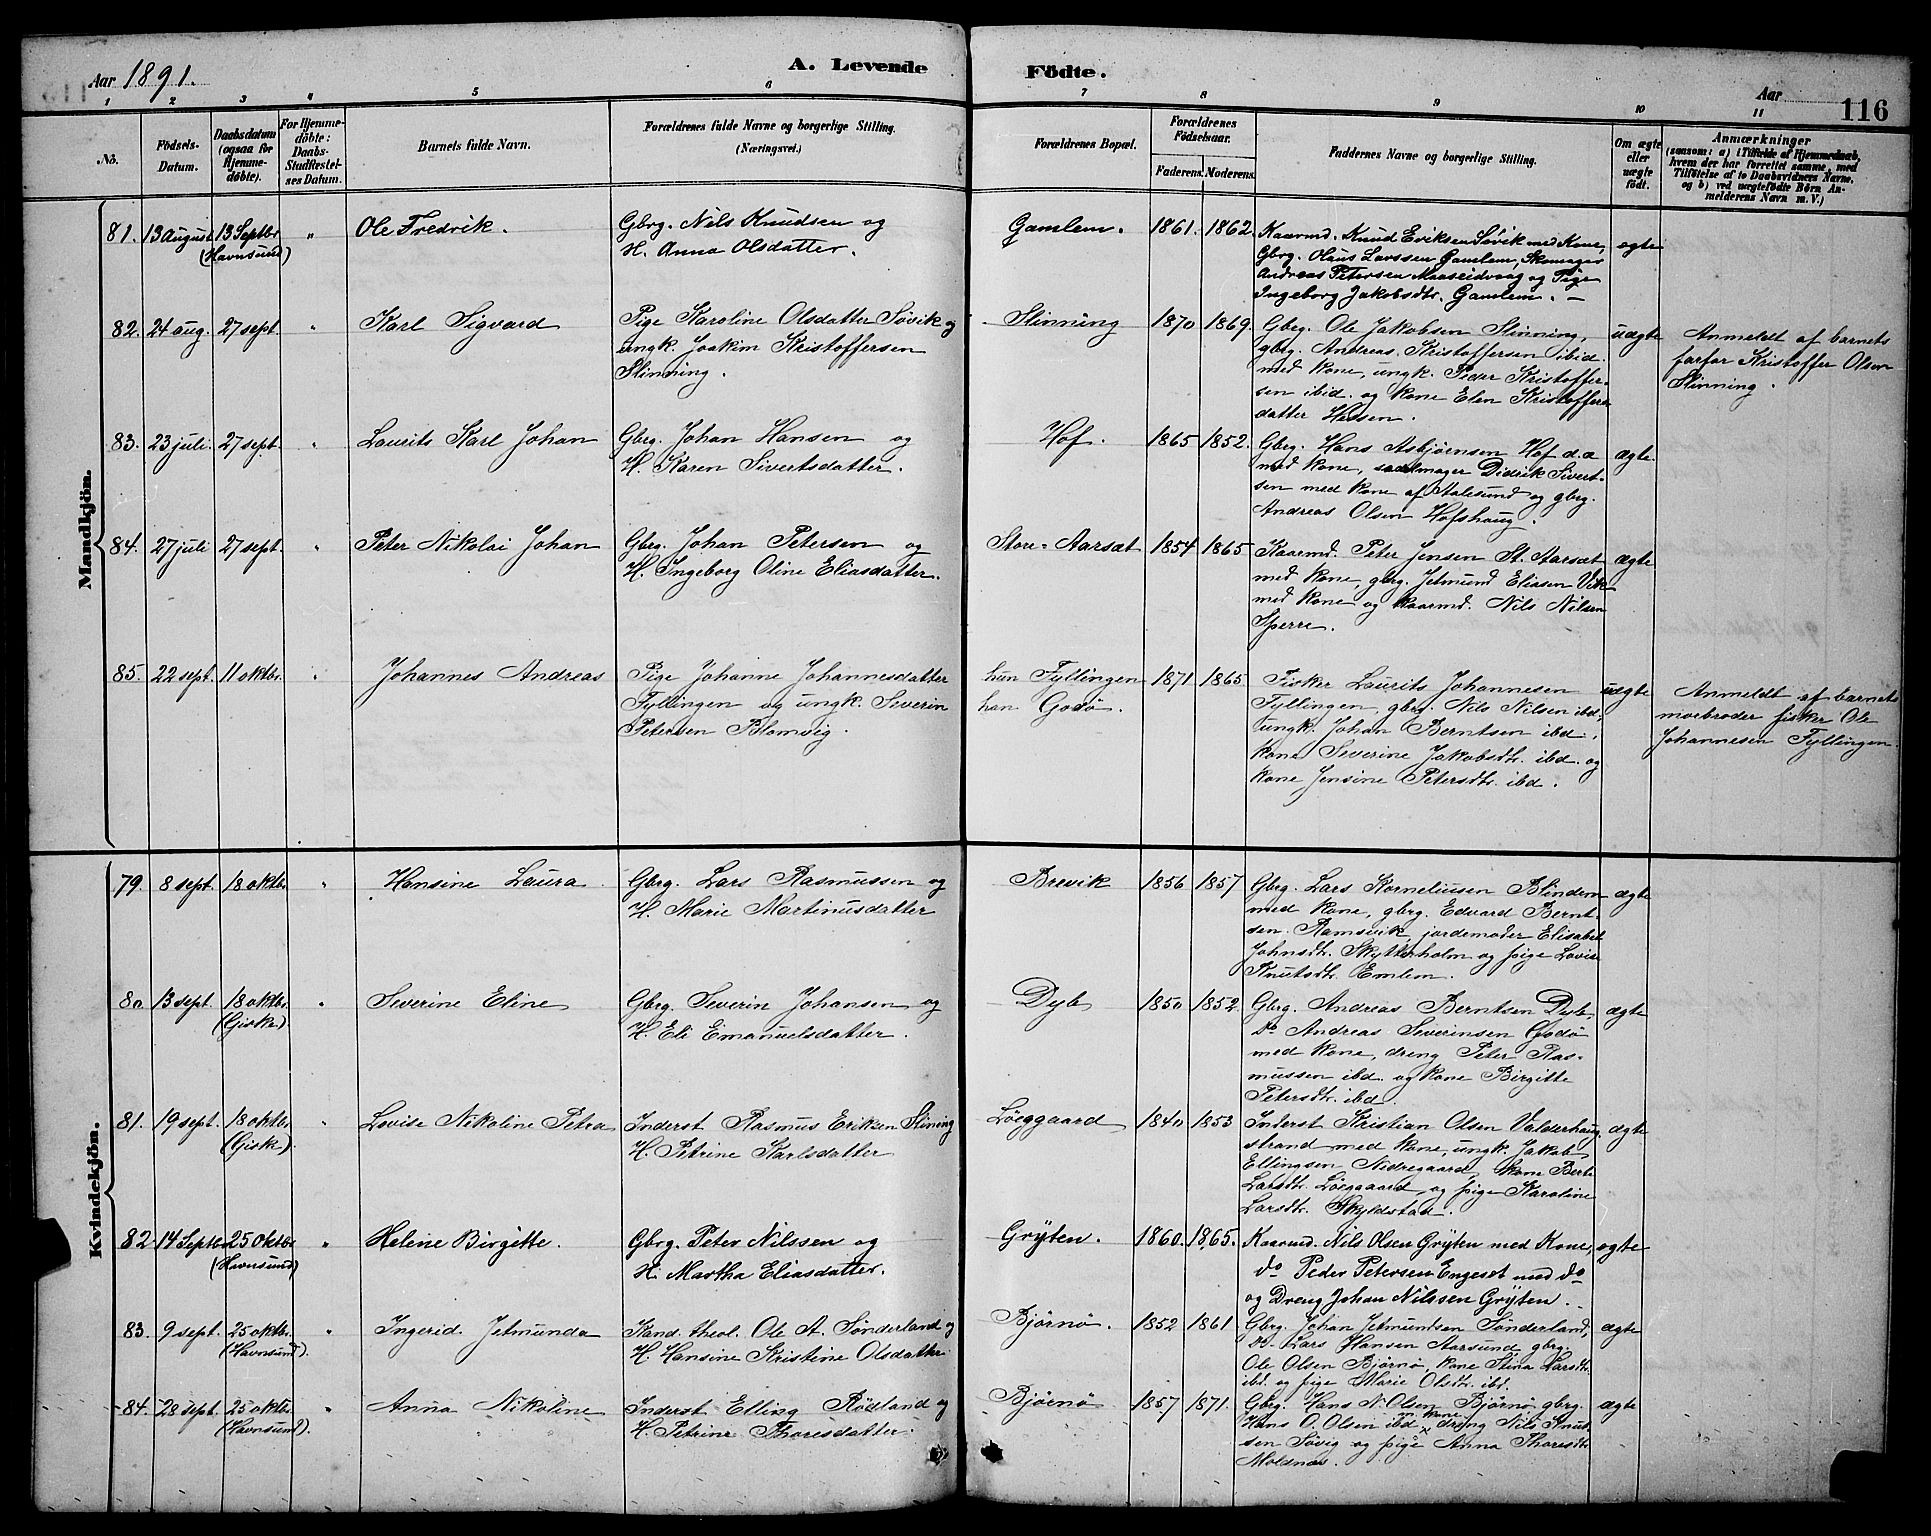 Aar 1891.
A. Levende Födte.
Aar
116
1 2 3 4 5 6 7 8 9 10 11
No.
Födsels-Datum.
Daabsdatum (ogsaa for Hjemmedöbte).
For Hjemmedöbte: Daabs-Stadfæstelses Datum.
Barnets fulde Navn.
Forældrenes fulde Navne og borgerlige Stilling.
(Næringsvei.)
Forældrenes Bopæl.
Forældrenes Födselsaar.
Faderens. Moderens.
Faddernes Navne og borgerlige Stilling.
Om ægte eller uægte födt.
Anmærkninger
(saasom: a) i Tilfælde af Hjemmedaab,
hvem der har forrettet samme, med
Tilföielse af to Daabsvidners Navne,
og b) ved uægtefödte Börn An-
melderens Navn m. V.)
Mandkjön.
81. 13 August 13 Septbr (Havnsund) " Ole Fredrik. Gbrg. Nils Knudsen og
H. Anna Olsdatter.
Gamlem. 1861. 1862. Kaarmd. Knud Eriksen Søvik med Kone,
Gbrg. Olaus Larssen Gamlem, Skomager
Andreas Petersen Maaseidvaag og Pige
Ingeborg Jakobsdtr. Gamlem. –
ægte
82. 24 aug. 27 sept. " Karl Sigvard Pige Karoline Olsdatter Søvik og
ungk. Joakim Kristoffersen
Slinning.
Slinning 1870 1869. Gbrg. Ole Jakobsen Slinning,
gbrg. Andreas Kristoffersen ibid.
med kone, ungk. Peder Kristoffer-
sen ibid. og kone Elen Kristoffers
datter Hessen.
uægte Anmeldt af barnets
farfar Kristoffer Olsen
Slinning.
83. 23 juli. 27 sept. " Laurits Karl Johan Gbrg. Johan Hansen og
H. Karen Sivertsdatter.
Hof. 1865 1852. Gbrg. Hans Asbjørnsen Hof d.æ
med kone, sadelmager Didrik Sivert-
sen med kone af Aalesund og gbrg.
Andreas Olsen Hofshaug.
ægte.
84. 27 juli 27 sept. " Peter Nikolai Johan Gbrg. Johan Petersen og
H. Ingeborg Oline Eliasdatter.
Store-Aarsæt 1854 1865. Kaarmd. Peter Jensen St. Aarsæt
med kone, gbrg. Jetmund Eliasen Vik
med kone og kaarmd. Nils Nilsen
Sperre.
ægte
85. 22 sept. 11 oktbr. " Johannes Andreas Pige Johanne Johannesdatter
Fyllingen og ungk. Severin
Petersen Blomvig.
hun Fyllingen
han Godø.
1871 1865. Fisker Laurits Johannesen
Fyllingen, gbrg. Nils Nilsen ibd.,
ungk. Johan Berntsen ibd.,
kone Severine Jakobsdtr. ibd. og
kone Jensine Petersdtr. ibd.
uægte Anmeldt af barnets
morbroder fisker Ole
Johannesen Fyllingen.
Kvindekjön.
79. 8 sept. 18 oktbr. " Hansine Laura. Gbrg. Lars Rasmussen og
H. Marie Martinusdatter
Brevik 1856 1857 Gbrg. Lars Korneliusen Blindem
med kone, gbrg. Edvard Bernt-
sen Ramsvik, jordemoder Elisabet
Johnsdtr. Skytterholm og pige Lovise
Knutsdtr. Emlem.
ægte
80 13 sept. 18 oktbr. (Giske) " Severine Eline Gbrg. Severin Johansen og
H. Eli Emanuelsdatter.
Dyb 1850 1852. Gbrg. Andreas Berntsen Dyb,
do Andreas Severinsen Godø
med kone, dreng Peter Ras-
mussen ibd. og kone Birgitte
Petersdtr. ibd.
ægte
81. 19 sept. 18 oktbr. (Giske). " Lovise Nikoline Petra Inderst Rasmus Eriksen Slining
H. Petrine Karlsdatter
Løeggaard 1840 1853 Inderst Kristian Olsen Valderhaug-
strand med kone, ungk. Jakob
Ellingsen Nedregaard, kone Berte
Larsdtr. Løeggaard og pige Karoline
Larsdtr. Skyldstad.
ægte
82 14 Septbr 25 Oktbr (Havnsund) " Helene Birgitte. Gbrg. Peter Nilssen og
H. Martha Eliasdatter.
Gryten. 1860. 1865. Kaarmd. Nils Olsen Gryten med Kone,
do Peder Petersen Engeset med do
og Dreng Johan Nilssen Gryten. –
ægte
83. 9 sept. 25 oktbr. (Havnsund). " Ingerid Jetmunda Kand. theol. Ole A. Sønderland og
H. Hansine Kristine Olsdatter.
Bjørnø. 1852 1861 Gbrg. Johan Jetmundsen Sønderland,
do– Lars Hansen Aarsund, gbrg.
Ole Olsen Bjørnø, kone Stina Larsdtr.
ibd. og pige Marie Olsdtr. ibd.
ægte
84. 28 sept. 25 oktbr. (Havnsund). " Anna Nikoline Inderst Elling Rødland og
H. Petrine Thoresdatter.
Bjørnø 1857 1871. Gbrg. Hans N. Olsen Bjørnø, gbrg.
Hans O. Olsen ibd. m. kone, dreng Nils Knut-
sen Søvig og pige Anna Thoresdtr.
Moldnæs.
ægte